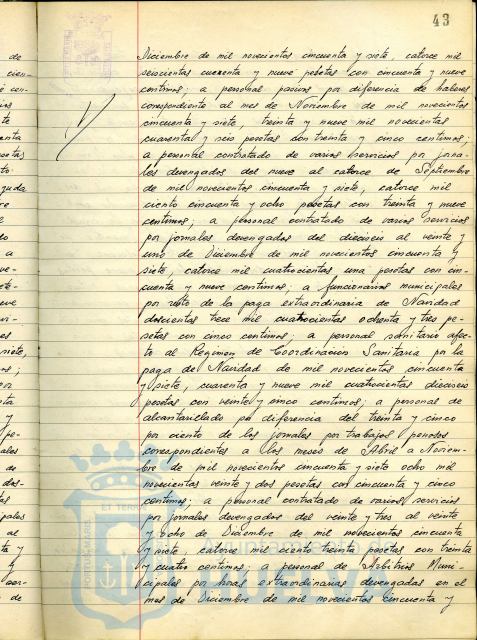 43
Diciembre de mil novecientos cincuenta y siete, catorce mil
seiscientas cuarenta y nueve pesetas con cincuenta y nueve
centimos; a personal pasivo por diferencia de haberes
correspondiente al mes de Noviembre de mil novecientos
cincuenta y siete, treinta y nueve mil novecientas
cuarenta y seis pesetas con treinta y cinco centimos;
a personal contratado de varios servicios por jorna-
les devengados del nueve al catorce de Septiembre
de mil novecientos cincuenta y siete, catorce mil
ciento cincuenta y ocho pesetas con treinta y nueve
centimos; a personal contratado de varios servicios
por jornales devengados del dieciseis al veinte y
uno de Diciembre de mil novecientos cincuenta y
siete, catorce mil cuatrocientas una pesetas con cin-
cuenta y nueve centimos; a funcionarios municipales
por resto de la paga extraordinaria de Navidad
doscientas trece mil cuatrocientas ochenta y tres pe-
setas con cinco centimos; a personal sanitario afec-
to al Regimen de Coordinacion Sanitaria por la
paga de Navidad de mil novecientos cincuenta
y siete, cuarenta y nueve mil cuatrocientas dieciseis
pesetas con veinte y cinco centimos; a personal de
alcantarillado por diferencia del treinta y cinco
por ciento de los jornales por trabajos penosos
correspondientes a los meses de Abril a Noviem-
bre de mil novecientos cincuenta y siete ocho mil
novecientas veinte y dos pesetas con cincuenta y cinco
centimos; a personal contratado de varios servicios
por jornales devengados del veinte y tres al veinte
y ocho de Diciembre de mil novecientos cincuenta
y siete, catorce mil ciento treinta pesetas con treinta
y cuatro centimos; a personal de Arbitrios Muni-
cipales por horas extraordinarias devengadas en el
mes de Diciembre de mil novecientos cincuenta y